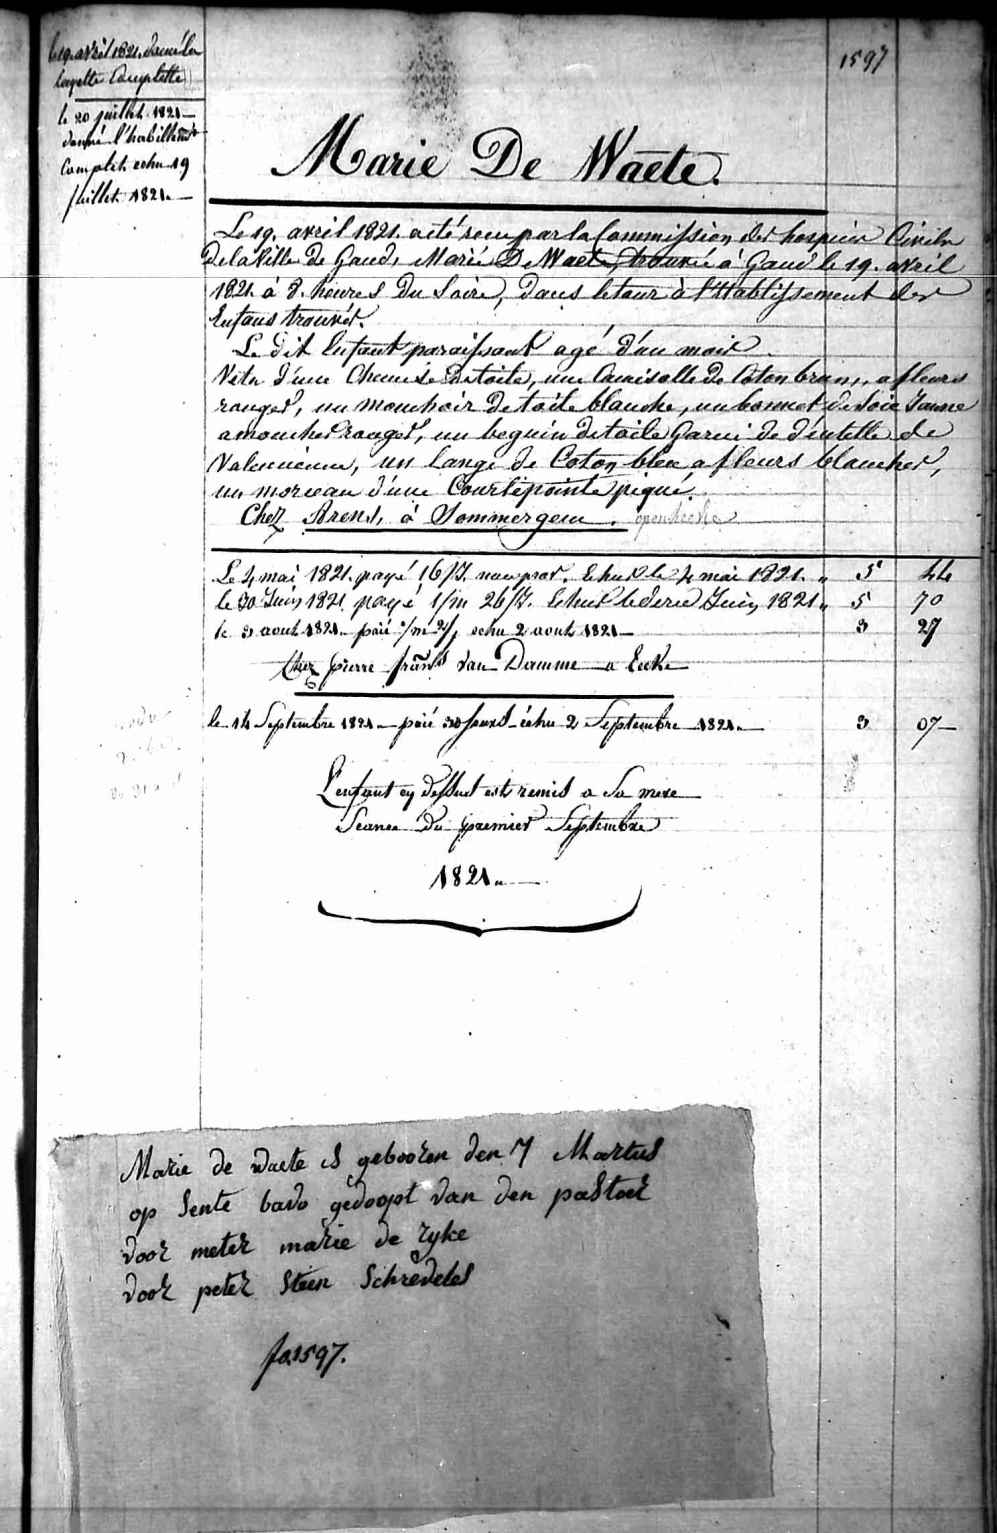 1597
le 19. avril 1821. donné la
layette Complette
le 20 juillet 1821 —
donné l'habillemt
Complet echu 19
juillet 1821. —
Marie De Waete.
Le 19. avril 1821. a été recu par la Commission des hospices Civils
de la Ville de Gand, Marie De Waete, trouvée à Gand le 19. avril
1821. à 8. heures du Soire, dans le tour à l'Etablissement des
Enfans trouvés.
Le dit Enfant paraissant agé d'un mois.
Vetu d'une Chemise de toile, une Camisolle de Coton brun, a fleurs
rouges, un mouchoir de toile blanche, un bonnet de Soie Jaune
a mouches rouges, un beguin de toile Garni de dentelle de
Valencienne, un Lange de Coton bleu a fleurs blanches,
un morceau d'une Courtepointe piqué.
Chez Arens, à Sommergem.
Le 4 mai 1821. payé 16/J. Echus le 4 mai 1821. „ 5 44
le 30 Juin 1821. payé 1/m 26/J. Echus Juin 1821 „ 5 70
le 3 aout 1821. paié 1/m 2/j echu 2 aout 1821 — 3 27
Chez pierre frans van Damme a Eecke
le 14 Septembre 1821 — paié 30 jours échu 2 Septembre 1821. — 3 07 —
L'enfant cy dessus est remis a Sa mere
Seance du premier Septembre
1821. —
Marie de waete is gebooren den 7 Martus
op Sente bavo gedoopt van den pastoer
voor meter marie de ryke
voor peter Steen Schredeles
fo. 1597.